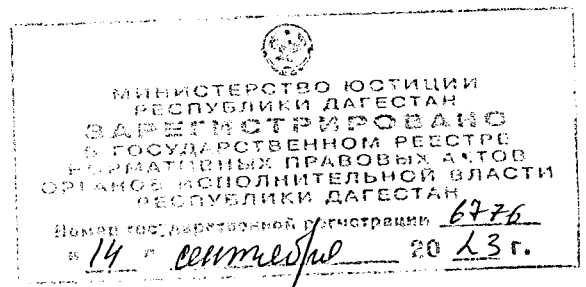 МИНИСТЕРСТВО ЮСТИЦИИ
РЕСПУБЛИКИ ДАГЕСТАН
ЗАРЕГИСТРИРОВАНО
В ГОСУДАРСТВЕННОМ РЕЕСТРЕ
НОРМАТИВНЫХ ПРАВОВЫХ АКТОВ
ОРГАНОВ ИСПОЛНИТЕЛЬНОЙ ВЛАСТИ
РЕСПУБЛИКИ ДАГЕСТАН
Номер государственной регистрации 6776
" 14 " сентября 20 23 г.